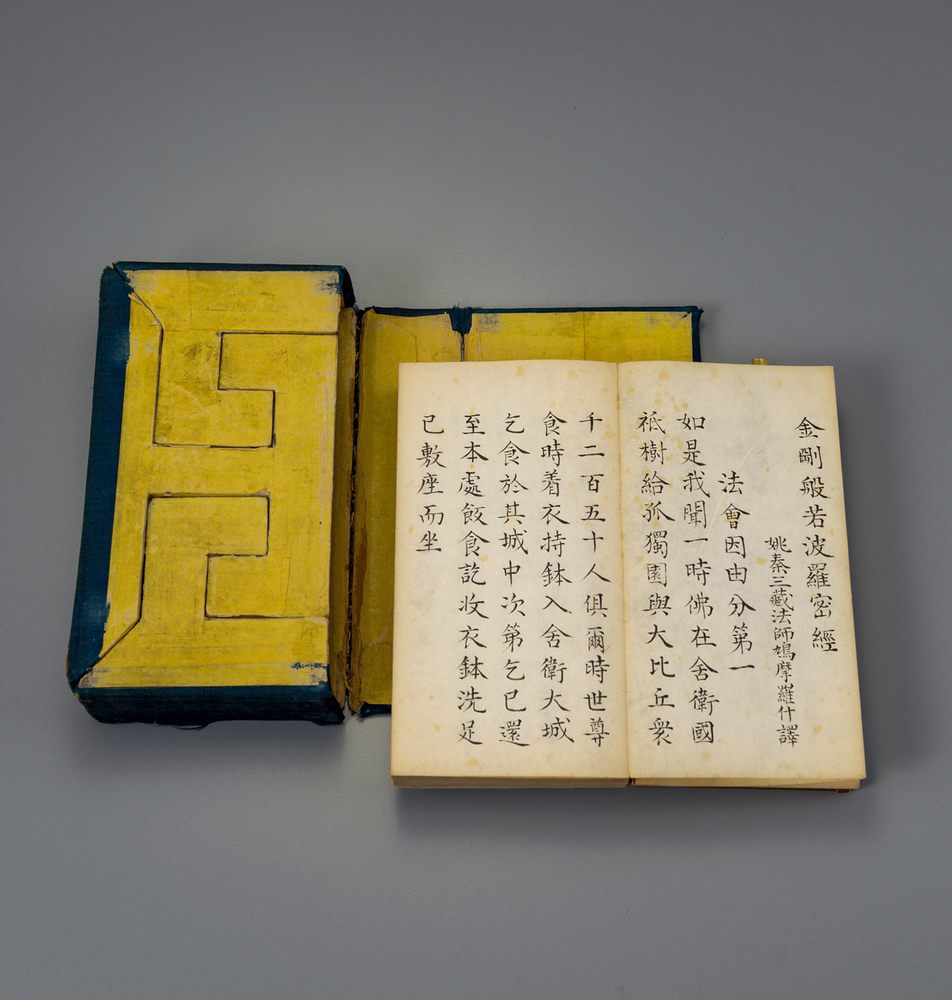 金剛般若波羅密經
姚秦三藏法師鳩摩羅什譯
法會因由分第一
如是我聞一時佛在舍衛國
祇樹給孤獨園與大比丘衆
千二百五十人俱爾時世尊
食時着衣持鉢入舍衛大城
乞食於其城中次第乞已還
至本處飯食訖收衣鉢洗足
已敷座而坐